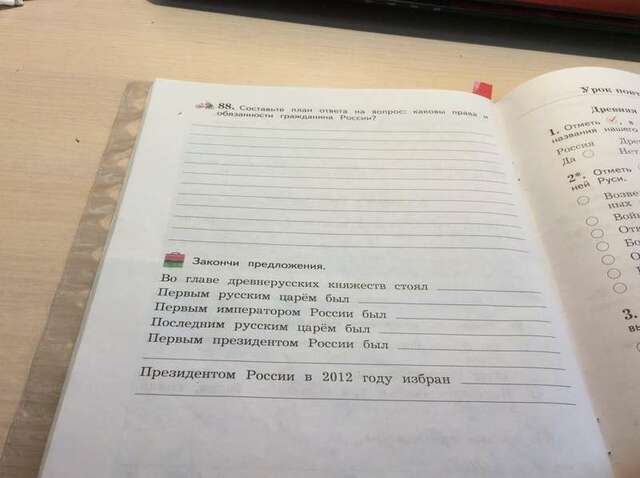 88. Составьте план ответа на вопрос: каковы права и
обязанности гражданина России?
Закончи предложения.
Во главе древнерусских княжеств стоял
Первым русским царём был
Первым императором России был
Последним русским царём был
Первым президентом России был
Президентом России в 2012 году избран
Урок
Древняя
1. Отметь ✓, в
названия нашего
Россия
Да Нет
2*. Отметь
ней Руси.
3.